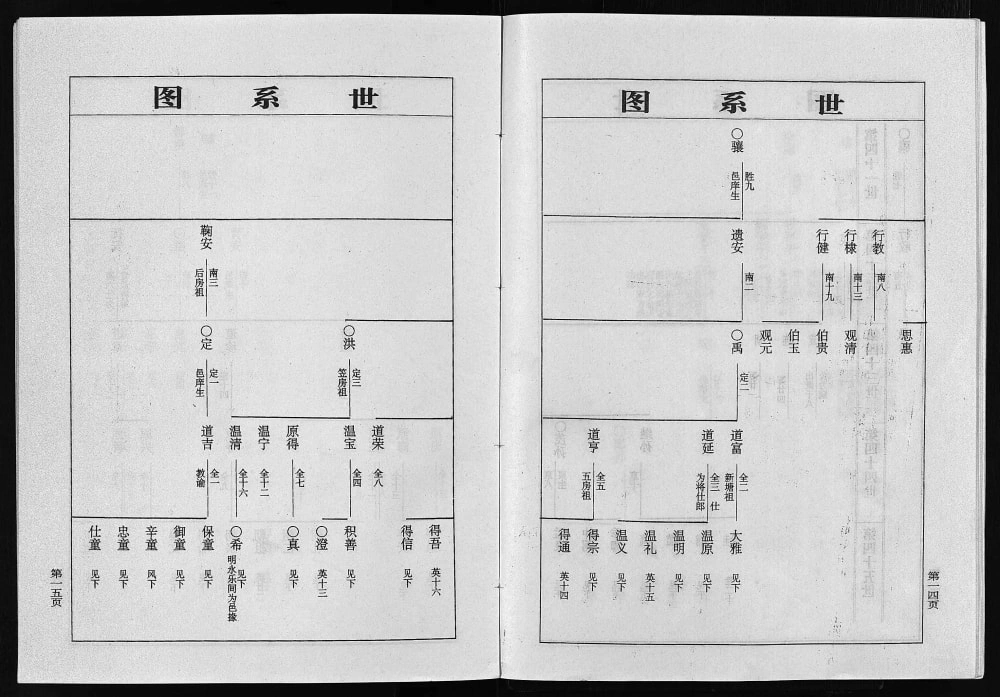 世系图
〇骧
胜九
邑庠生
行教
南八
行棣
南十三
行健
南十九
遗安
南二
思惠
观清
伯贵
伯玉
观元
〇禹
定二
道富
全二
新塘祖
道延
全三 仕
为将仕郎
道亨
全五
五房祖
大雅 见下
温原 见下
温明 见下
温礼 英十五
温义 见下
得宗 见下
得通 英十四
第一四页
世系图
鞠安
南三
后房祖
〇洪
定三
笠房祖
〇定
定一
邑庠生
道荣
全八
温宝
全四
原得
全七
温宁
全十二
温清
全十六
道吉
全一
教谕
得吾 英十六
得信 见下
积善 见下
〇澄 英十三
〇真 见下
〇希 见下
明永乐间为邑掾
保童 见下
御童 见下
辛童 风下
忠童 见下
仕童 见下
第一五页